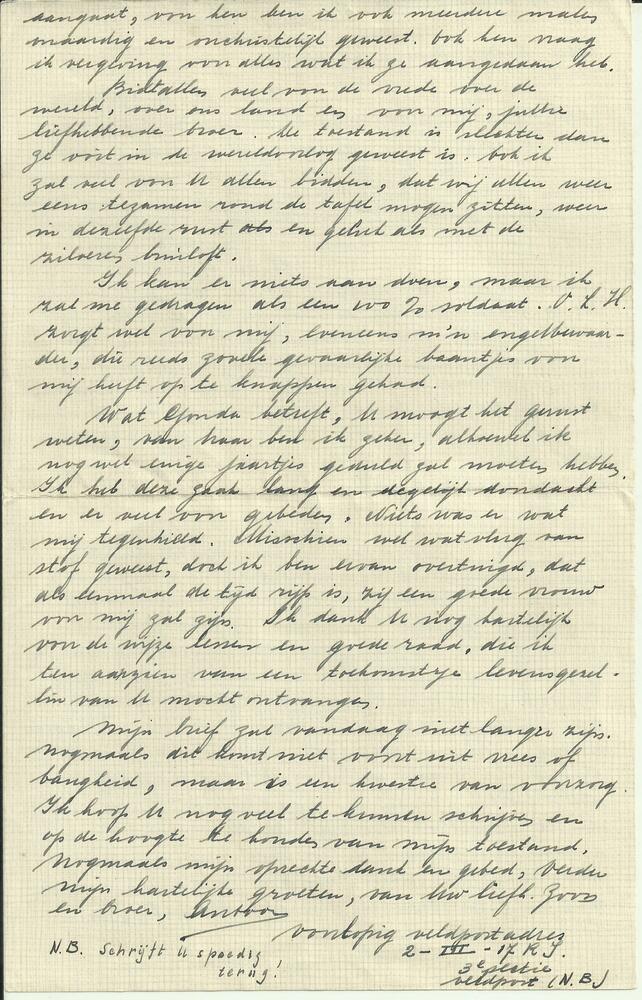 aangaat, van hen ben ik ook meerdere malen
onaardig en onchristelijk geweest. Ook hen vraag
ik vergeving voor alles wat ik ze aangedaan heb.
Bidt allen veel voor de vrede over de
wereld, over ons land en voor mij, jullie
liefhebbende broer. De toestand is slechter dan
ze ooit in de wereldoorlog geweest is. Ook ik
zal veel voor U allen bidden, dat wij allen weer
eens tezamen rond de tafel mogen zitten, weer
in dezelfde rust als en geluk als met de
zilveren bruiloft.
Ik kan er niets aan doen, maar ik
zal me gedragen als een 100 % soldaat. O. L. H.
zorgt wel voor mij, eveneens m'n engelbewaar-
der, die reeds zovele gevaarlijke baantjes voor
mij heeft op te knappen gehad.
Wat Gonda betreft, U moogt het gerust
weten, van haar ben ik zeker, alhoewel ik
nog wel enige jaartjes geduld zal moeten hebben.
Ik heb deze zaak lang en degelijk doordacht
en er veel voor gebeden. Niets was er wat
mij tegenhield. Misschien wel wat vlug van
stof geweest, doch ik ben ervan overtuigd, dat
als eenmaal de tijd rijp is, zij een goede vrouw
voor mij zal zijn. Ik dank U nog hartelijk
voor de wijze lessen en goede raad, die ik
ten aanzien van een toekomstige levensgezel-
lin van U mocht ontvangen.
Mijn brief zal vandaag niet langer zijn.
Nogmaals dit komt niet voort uit vrees of
bangheid, maar is een kwestie van voorzorg.
Ik hoop U nog veel te kunnen schrijven en
op de hoogte te houden van mijn toestand.
Nogmaals mijn oprechte dank en gebed, verder
mijn hartelijke groeten, van Uw liefh. Zoon
en broer, Antoon
voorlopig veldpostadres
N.B. Schrijft U spoedig
terug!
2 - III - 17 R.I.
3e sectie
veldpost (N.B.)